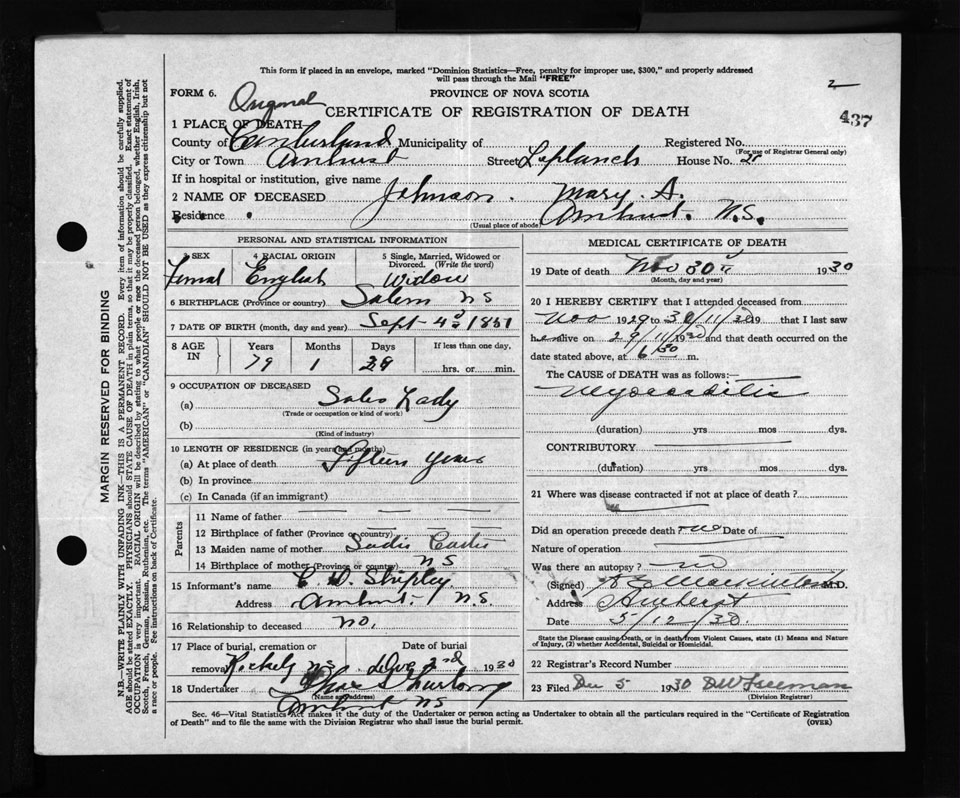 This form if placed in an envelope, marked "Dominion Statistics—Free, penalty for improper use, $300," and properly addressed
will pass through the Mail "FREE"
FORM 6.
PROVINCE OF NOVA SCOTIA
Original
CERTIFICATE OF REGISTRATION OF DEATH
2
437
1 PLACE OF DEATH—
County of Cumberland Municipality of Registered No.
(For use of Registrar General only)
City or Town Amherst Street Laplanch House No.
If in hospital or institution, give name
2 NAME OF DECEASED Johnson. Mary A.
Residence Amherst. N.S.
(Usual place of abode)
PERSONAL AND STATISTICAL INFORMATION
3 SEX 4 RACIAL ORIGIN 5 Single, Married, Widowed or
Divorced. (Write the word)
Femal English Widow
6 BIRTHPLACE (Province or country) Salem NS
7 DATE OF BIRTH (month, day and year) Sept 4 1851
8 AGE IN Years Months Days If less than one day,
79 1 hrs. or min.
9 OCCUPATION OF DECEASED
(a) Sales Lady
(Trade or occupation or kind of work)
(b)
(Kind of industry)
10 LENGTH OF RESIDENCE (in years and months)
(a) At place of death Fifteen years
(b) In province
(c) In Canada (if an immigrant)
Parents
11 Name of father
12 Birthplace of father (Province or country)
13 Maiden name of mother Sadie
14 Birthplace of mother (Province or country) NS
15 Informant's name C. W. Shipley.
Address Amherst. N.S.
16 Relationship to deceased no.
17 Place of burial, cremation or Date of burial
removal NS 1930
18 Undertaker Furlong
(Name and address)
Amherst NS
MEDICAL CERTIFICATE OF DEATH
19 Date of death Nov 30 1930
(Month, day and year)
20 I HEREBY CERTIFY that I attended deceased from
Nov 1929 to 30/11/30 19 that I last saw
her alive on 29/11/30 and that death occurred on the
date stated above, at 6 30 m.
The CAUSE of DEATH was as follows:—
Myocarditis
(duration) yrs mos dys.
CONTRIBUTORY
(duration) yrs mos dys.
21 Where was disease contracted if not at place of death?
Did an operation precede death? no Date of
Nature of operation
Was there an autopsy? no
(Signed) M.D.
Address Amherst
Date 5/12/30
State the Disease causing Death, or in death from Violent Causes, state (1) Means and Nature
of Injury, (2) whether Accidental, Suicidal or Homicidal.
22 Registrar's Record Number
23 Filed Dec 5 1930 DW Freeman
(Division Registrar)
Sec. 46—Vital Statistics Act makes it the duty of the Undertaker or person acting as Undertaker to obtain all the particulars required in the "Certificate of Registration
of Death" and to file the same with the Division Registrar who shall issue the burial permit. (OVER)
MARGIN RESERVED FOR BINDING
N.B.—WRITE PLAINLY WITH UNFADING INK—THIS IS A PERMANENT RECORD. Every item of information should be carefully supplied.
AGE should be stated EXACTLY. PHYSICIANS should STATE CAUSE OF DEATH in plain terms, so that it may be properly classified. Exact statement of
OCCUPATION is very important. RACIAL ORIGIN will be described by stating to what people or race the deceased person belonged, whether English, Irish,
Scotch, French, German, Russian, Ruthenian, etc. The terms "AMERICAN" or "CANADIAN" SHOULD NOT BE USED as they express citizenship but not
a race or people. See instructions on back of Certificate.